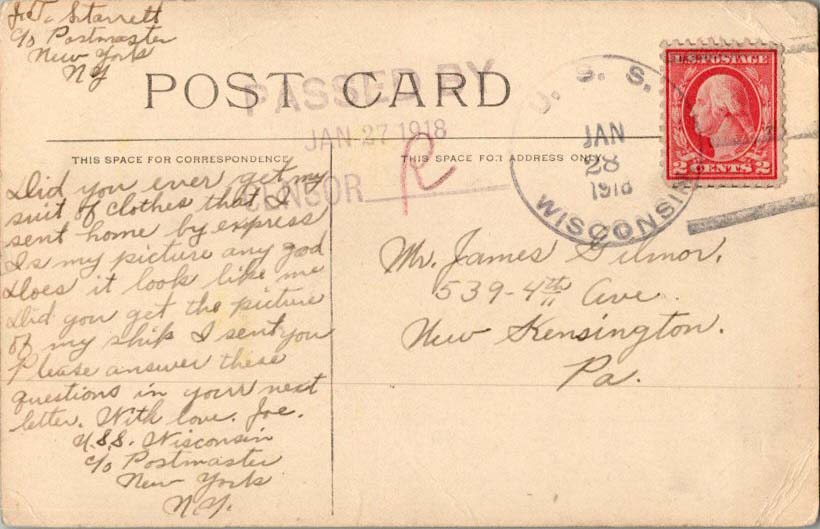 J.T. Starrett
c/o Postmaster
New York
NY
POST CARD
PASSED BY
JAN 27 1918
CENSOR R
THIS SPACE FOR CORRESPONDENCE
THIS SPACE FOR ADDRESS ONLY
U. S. S.
JAN
28
1918
WISCONSIN
U.S. POSTAGE
2 CENTS 2
Did you ever get my
suit of clothes that I
sent home by express
Is my picture any good
Does it look like me
Did you get the picture
of my ship I sent you
Please answer these
questions in your next
letter. With love. Joe.
U.S.S. Wisconsin
c/o Postmaster
New York
N.Y.
Mr. James Gilmor.
539-4th Ave.
New Kensington.
Pa.